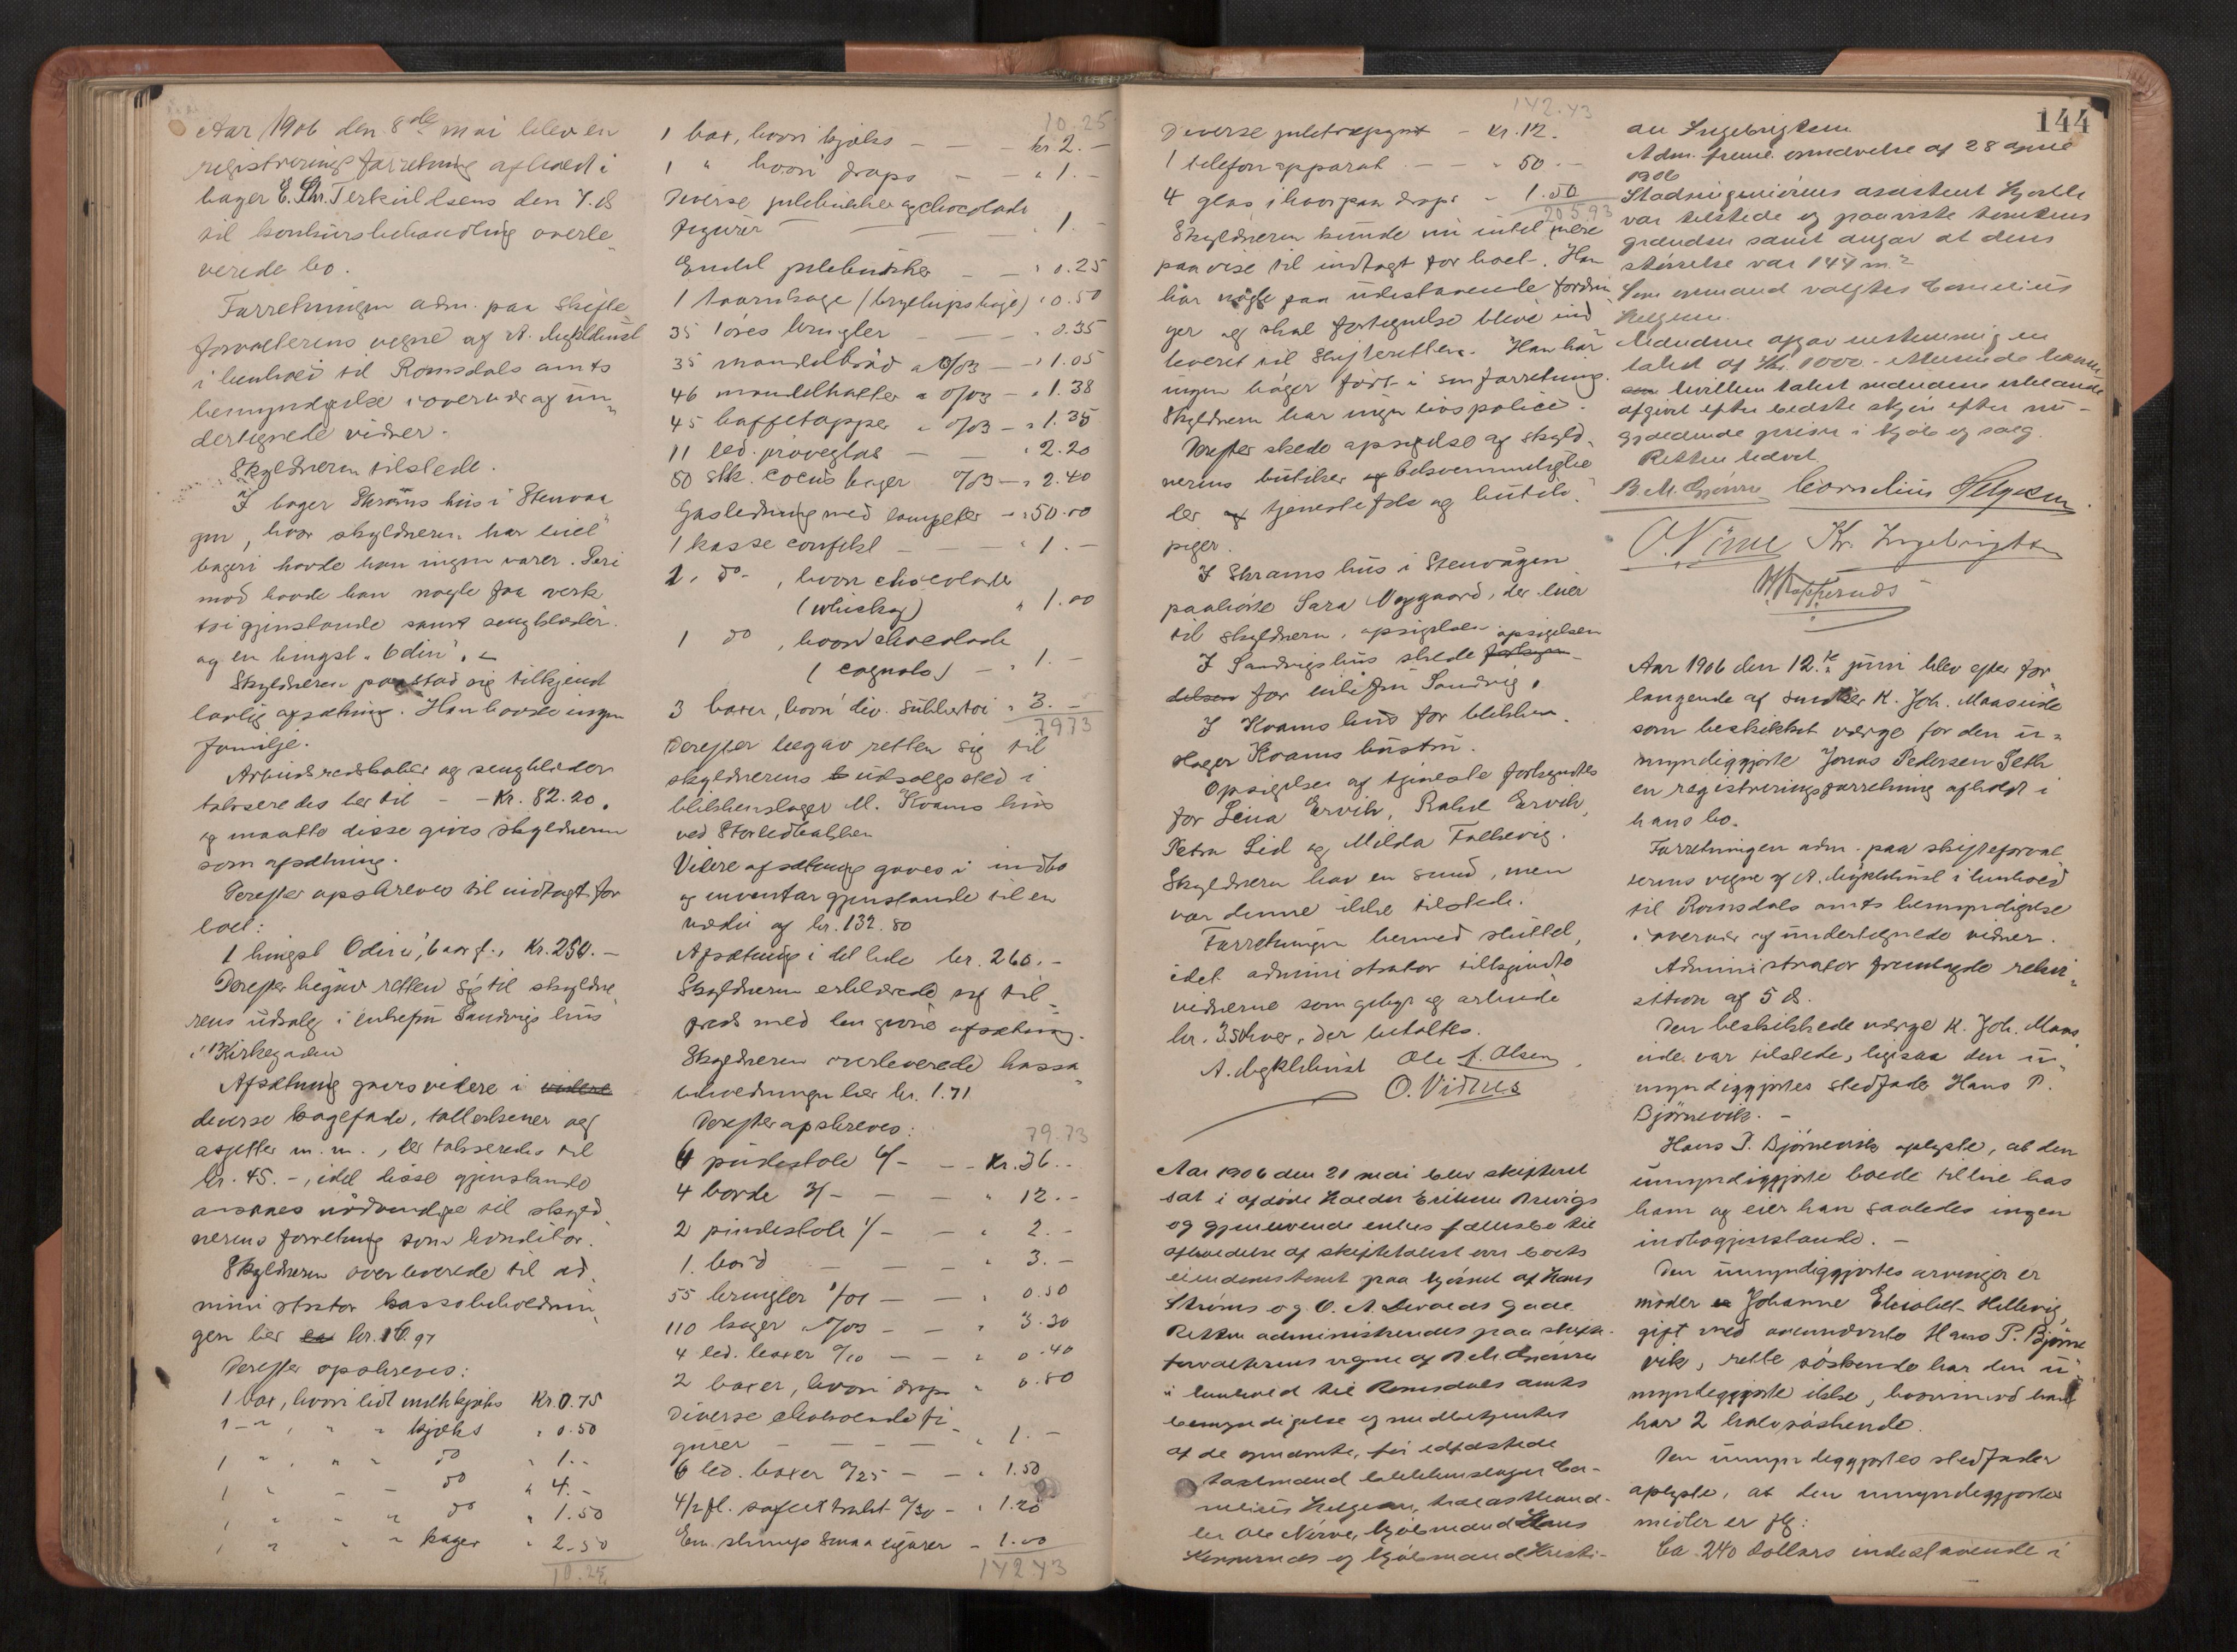 Aar 1906 den 8de mai blev en
registreringsforretning afholdt i
bager E. Chr. Terkildsens den 7. ds
til konkursbehandling overle-
verede bo.
Forretningen adm. paa skifte
forvalterens vegne af A. Myklebust
i henhold til Romsdals amts
bemyndigelse i overvær af un-
dertegnede vidner.
Skyldneren tilstede.
I bager Skrams hus i Stenvaa
gen, hvor skyldneren har leiet
bageri havde han ingen varer. Deri
mod havde han nogle faa verk
tøigjenstande samt sengklæder
og en hingst "Odin".
Skyldneren paastod sig tilkjendt
lovlig afsætning. Han havde ingen
familje.
Arbeidsredskaber og sengklæder
taxeredes her til - - Kr. 82.20.
og maatte disse gives skyldneren
som afsætning.
Derefter opskreves til indtægt for
boet:
1 hingst Odin, 6 aar g., Kr. 250.-
Derefter begav retten sig til skyldne
rens udsalg i enkefru Sandvigs hus
i Kirkegaden
Afsætning gives videre i
diverse kagefade, tallerkener og
asjetter m.m., der taxeredes til
kr. 45.-, idet disse gjenstande
ansaaes nødvendige til skyld
nerens forretning som konditor.
Skyldneren overleverede til ad
ministrator kassabeholdnin
gen her kr. 16.97
Derefter opskreves:
1 box, hvori lidt melkkjeks Kr. 0.75
1 - " , " " kjeks " 0.50
1 " , " " do " 1.-
1 " - - do " 4.-
1 " " " do " 1.50
1 " " " kager " 2.50
10.25
10.25
1 box, hvori kjeks - - - kr 2.-
1 " hvori drops - - " 1.-
Diverse julekurve og chocolade
figurer - - - " 1.-
Endel julebusker - - " 0.25
1 taarnkage (bryllupskage) " 0.50
35 löses kringler - - " 0.35
35 mandelbrød a 0/03 - " 1.05
46 mandelhatter a 0/03 - " 1.38
45 kaffetopper a 0/03 - " 1.35
11 led. prøveglas - - " 2.20
80 stk. cocus kager 0/03 - " 2.40
Gasledning med lampeter - " 50.00
1 kasse confekt - - " 1.-
1 " do , hvori chocolade
(whisky) " 1.00
1 do , hvori chocolade
(cognaks) - " 1.-
3 boxer, hvori div. sukkertøi " 3.-
79.73
Derefter begav retten sig til
skyldnerens udsalgssted i
blikkenslager M. Kvams hus
ved Storhedbakken
Videre afsætning gaves i indbo
og inventargjenstande til en
værdi af kr. 132.80
Afsætning i det hele kr. 260.-
Skyldneren erklærede sig til-
freds med den givne afsætning.
Skyldneren overleverede kassa
beholdningen her kr. 1.71
Derefter opskreves:
79.73
6 pindestole 6/- - - Kr. 36.-
4 borde 3/- - - " 12.-
2 pindestole 1/- - " 2.-
1 bord - - - " 3.-
55 kringler 0/01 - - " 0.50
110 kager a 0/03 - - " 3.30
4 led. boxer 0/10 - - " 0.40
2 boxer, hvori drops " 0.80
Diverse chokoladefi-
gurer - - - - " 1.-
6 led. boxer 0/25 - - " 1.50
4/2 fl. saftextrakt 0/30 - " 1.20
En slump smaa cigarer - 1.00
142 43
142.43
Diverse juletræpynt - Kr. 12.
1 telefonapparat - - " 50.-
4 glas i hvorpaa drops - 1.50
205.93
Skyldneren kunde nu intet mere
paavise til indtægt for boet. Han
har nogle faa udestaaende fordrin
ger og skal fortegnelse blive ind
leveret til skifteretten. Han har
ingen bøger ført i sin forretning.
Skyldneren har ingen livspolice.
Derefter skede opsigelse af skyld-
nerens butikker og beboernuligheder
ler tjenestefolk og butik-
piger.
I Skrams hus i Stenvågen
paahørte Sara Nygaard, der leier
til skyldneren, opsigelsen.
I Sandvigs hus skede opsigelsen
for enkefru Sandvig.
I Kvams hus for blikken-
slager Kvams hustru.
Opsigelse af tjeneste forkyndtes
for Lina Ervik, Rakel Ervik,
Petra Lid og Milda Falkevig.
Skyldneren har en svend, men
var denne ikke tilstede.
Forretningen hermed sluttet,
idet administrator tilkjendte
vidnerne som gebyr og arbeide
kr. 3.50 hver, der betaltes.
A. Myklebust Ole A. Olsen
O. Vidnes
Aar 1906 den 21 mai blev skifteret
sat i afdøde Haldor Eriksen Brevigs
og gjenlevende enkes fællesbo til
afholdelse af skiftetakst over boets
eiendomstomt paa hjørnet af Hans
Strøms og O. A. Devolds gade.
Retten administreredes paa skifte-
forvalterens vegne af B. M. Gjørvæ
i henhold til Romsdals amts
bemyndigelse og medbetjentes
af de opnævnte, før edfæstede
takstmænd blikkenslager Cor-
nelius Helgesen, trælasthand-
ler Ole Nørve, kjøbmand Hans
Kopperud og kjøbmand Kristi-
144
an Ingebrigtsen
Adm. fremla opnævnelse af 28 april
1906
Stadsingeniørens assistent Hjorth
var tilstede og paaviste tomtens
grænser samt angav at dens
størrelse var 144 m2
Som ormand valgtes Cornelius
Helgesen.
Mændene afgav enstemmig en
takst af Kr. 1000.- ettusinde kroner
hvilken takst mændene erklærede
afgivet efter bedste skjøn efter nu-
gjældende priser i kjøb og salg.
Retten hævet
B. M. Gjørvæ Cornelius Helgesen.
O. Nörve Kr. Ingebrigtsen
H. Kopperud
Aar 1906 den 12.te juni blev efter for
langende af snedker K. Joh. Maaseide
som beskikket værge for den u-
myndiggjorte Jonas Pedersen Seth
en registreringsforretning afholdt i
hans bo.
Forretningen adm. paa skifteforval
terens vegne af A. Myklebust i henhold
til Romsdals amts bemyndigelse
i overvær af undertegnede vidner.
Administrator fremlagde rekvi-
sition af 5 ds.
Den beskikkede værge K. Joh. Maas
eide var tilstede, ligesaa den u-
myndiggjortes stedfader Hans P.
Bjørnevik. -
Hans P. Bjørnevik oplyste, at den
umyndiggjorte boede til leie hos
ham og eier han saaledes ingen
indbogjenstande. -
Den umyndiggjortes arvinger er
moder Johanne Elisabet Hellevig,
gift med ovennævnte Hans P. Bjørne
vik, rette søskende har den u-
myndiggjorte ikke, hvorimod han
har 2 halvsøskende.
Den umyndiggjortes stedfader
oplyste, at den umyndiggjortes
midler er flg:
Ca. 240 dollars indestaaende i